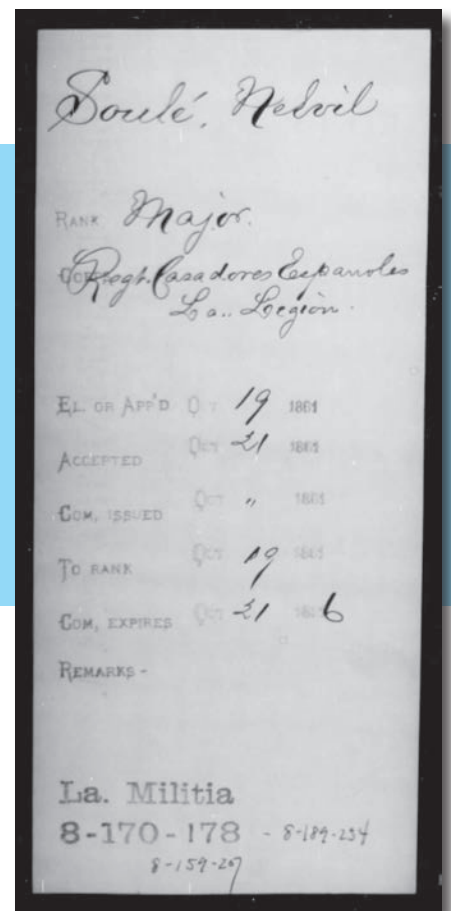 Soulé, Nelvil
RANK Major.
CORPS Regt. Casadores Españoles
La. Legion.
EL. OR APP'D OCT 19 1861
ACCEPTED OCT 21 1861
COM. ISSUED OCT " 1861
TO RANK OCT 19 1861
COM. EXPIRES OCT 21 186 6
REMARKS -
La. Militia
8-170-178 - 8-189-234
8-159-207